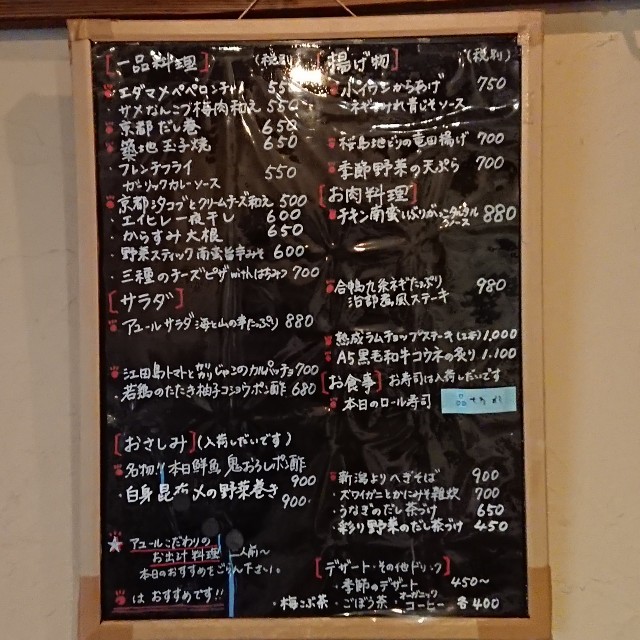 [一品料理] (税別)
エダマメペペロンチーノ 550
サメなんこつ梅肉和え 550
京都だし巻 650
築地玉子焼 650
フレンチフライ
ガーリックカレーソース 550
京都汐タコブとクリームチーズ和え 500
エイヒレ一夜干し 600
からすみ大根 650
野菜スティック南蛮旨辛みそ 600
三種のチーズピザwithはちみつ 700
[サラダ]
アユールサラダ 海と山の幸たっぷり 880
江田島トマトとカリカリじゃこのカルパッチョ 700
若鶏のたたき柚子コショウポン酢 680
[おさしみ] (入荷しだいです)
名物!! 本日鮮魚 鬼おろしポン酢 900
・白身昆布〆の野菜巻き 900.
★ アユールこだわりの
お出汁料理 一人前〜
本日のおすすめをごらん下さい。
は おすすめです!!
[揚げ物] (税別)
からあげ 750
ソース
桜島地どりの竜田揚げ 700
季節野菜の天ぷら 700
[お肉料理]
チキン南蛮いぶりがっこタルタル
ソース 880
合鴨九条ネギたっぷり
治部煮風ステーキ 980
熟成ラムチョップステーキ(2本) 1,000
A5黒毛和牛コウネの炙り 1,100
[お食事] お寿司は入荷しだいです
・本日のロール寿司
新潟よりへぎそば 900
・ズワイガニとかにみそ雑炊 700
・うなぎのだし茶づけ 650
・彩り野菜のだし茶づけ 450
[デザート・その他ドリンク]
・季節のデザート 450〜
・梅こぶ茶 ・ごぼう茶 オーガニックコーヒー 各400